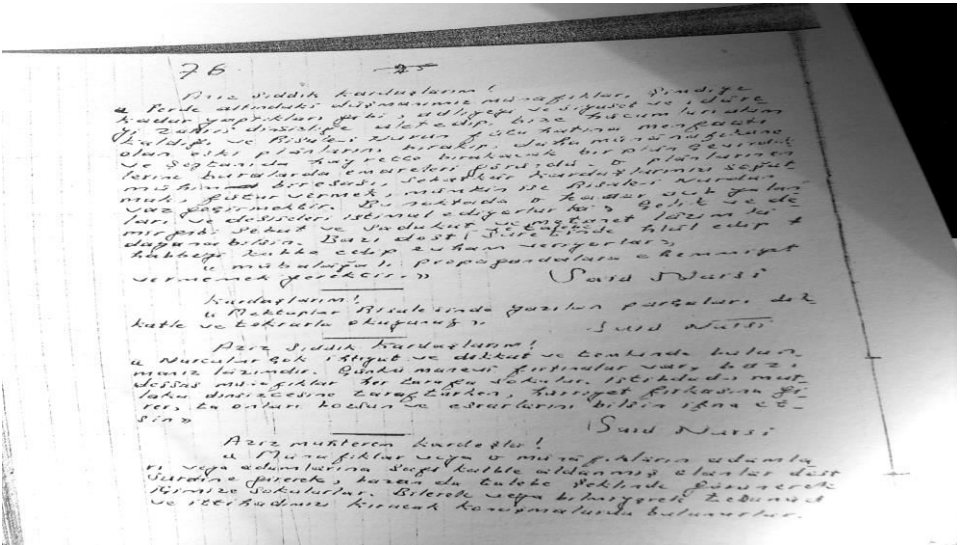 76
Aziz Sıddık Kardaşlarım!
« Perde altındaki düşmanımız münafıkları şimdiye
kadar yaptıkları gibi, adliyeyi ve siyaset ve idare
yi zahiri dinsizliğe alet edip, bize hücumları akim
kaldığı ve Risale-i Nurun fütuhatına menfaatı
olan eski plânlarını bırakıp, daha münafıkane
ve şeytanıda hayrette bırakacak bir plân çevirdik
lerine buralarda emareleri göründü. O plânlarının
mühim bir esası, sebatkâr kardaşlarımızı soğut
mak, fütur vermek, mümkin ise Risale-i Nurdan
vaz geçirmekdir. Bu noktada o kadar çok yalan
ları ve desiseleri istimal ediyorlar ki, Çelik ve de
mir gibi sebat ve sadakat ve metanet lâzım ki
dayanabilsin. Bazı dost suretinde hlûl edip
habbeyi kubbe edip evham veriyorlar,
« mübalâğalı propagandalara ehemmiyet
vermemek gerekdir.» Said Nursi
Kardaşlarım!
« Mektuplar Risalesinde yazılan parçaları dik
katle ve tekrarla okuyunuz». Said Nursi
Aziz Sıddık Kardaşlarım!
« Nurcular çok ihtiyat ve dikkat ve temkinde bulun
manız lâzımdır. Çünkü manevi fırtınalar var, bazı
dessas münafıklar her tarafa sokulur. İstibdadı mut
laka dinsizcesine taraftarken, hürriyet fırkasına gi
rer, ta onları bozsun ve esrarlarını bilsin ifna et-
sin» Said Nursi
Aziz muhterem Kardeşler!
« Münafıklar veya o münafıkların adamla
rı veya adamlarına safi kalble aldanmış olanlar dost
suretine girerek, bazan da talebe şeklinde görünerek
içimize sokulurlar. Bilerek veya bilmiyerek tesanüd
ve ittihadımızı kıracak konuşmalarda bulunurlar.